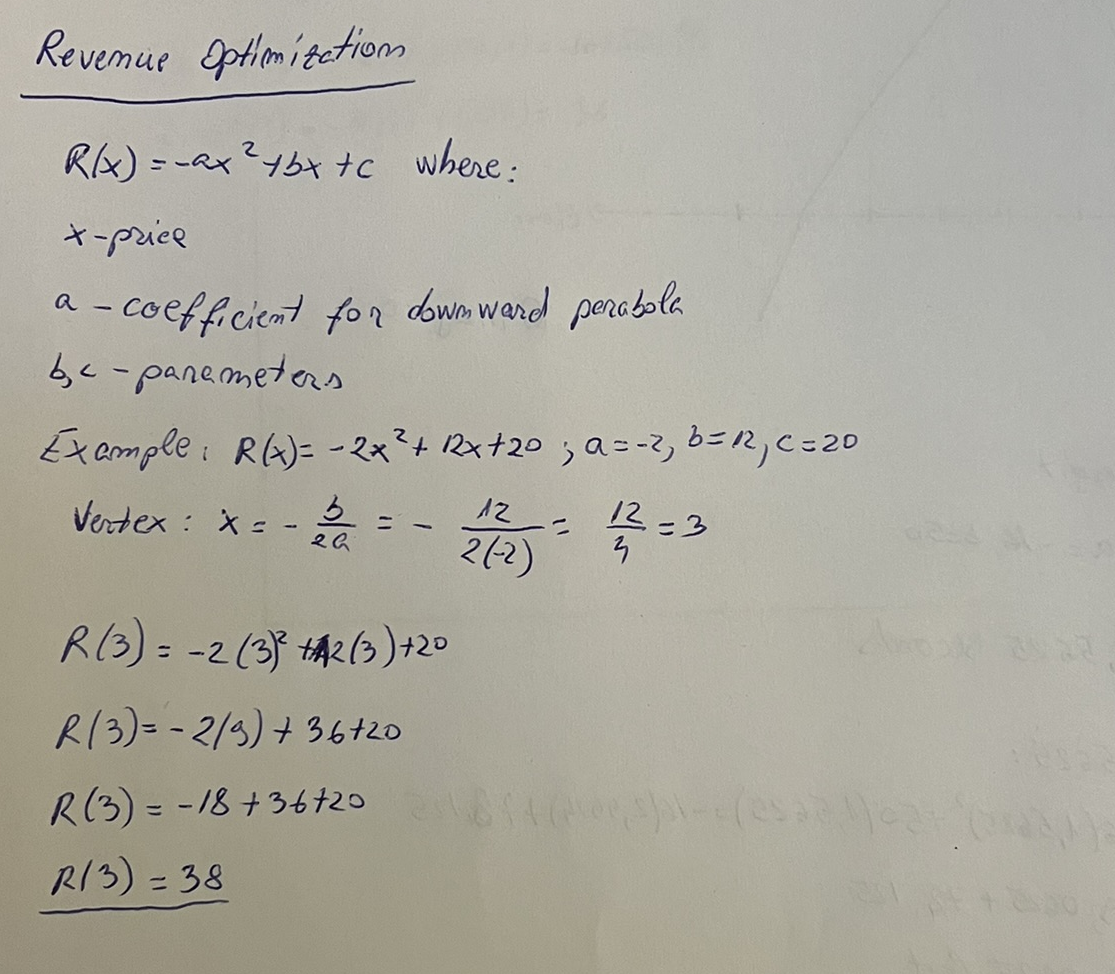 Revenue Optimization
R(x) = -ax² + bx + c where:
x - price
a - coefficient for downward parabola
b, c - parameters
Example: R(x) = -2x² + 12x + 20 ; a = -2, b = 12, c = 20
Vertex: x = - b/2a = - 12/2(-2) = 12/4 = 3
R(3) = -2(3)² + 12(3) + 20
R(3) = -2(9) + 36 + 20
R(3) = -18 + 36 + 20
R(3) = 38